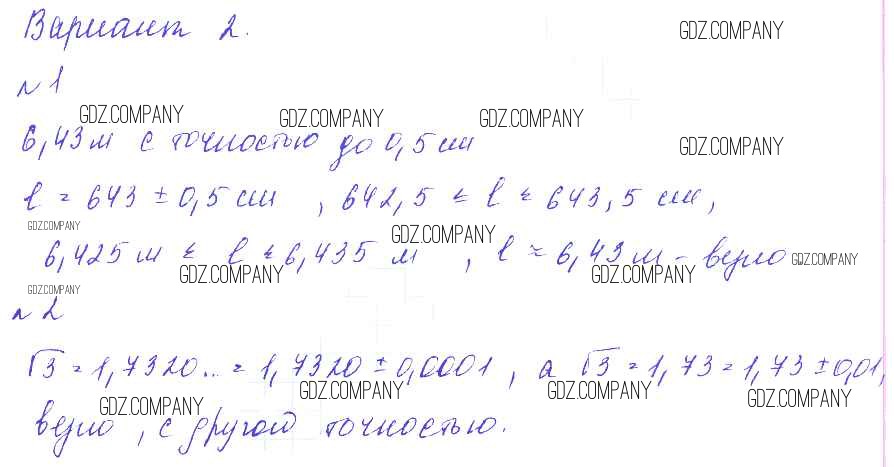 Вариант 2.
GDZ.COMPANY
№1
GDZ.COMPANY GDZ.COMPANY GDZ.COMPANY
6,43 м с точностью до 0,5 см
GDZ.COMPANY
l = 643 ± 0,5 см , 642,5 ≤ l ≤ 643,5 см,
GDZ.COMPANY GDZ.COMPANY
6,425 м ≤ l ≤ 6,435 м , l ≈ 6,43 м - верно
GDZ.COMPANY GDZ.COMPANY GDZ.COMPANY
GDZ.COMPANY
№2
√3 = 1,7320... = 1,7320 ± 0,0001 , а √3 = 1,73 = 1,73 ± 0,01,
GDZ.COMPANY GDZ.COMPANY GDZ.COMPANY GDZ.COMPANY
верно , с другой точностью.